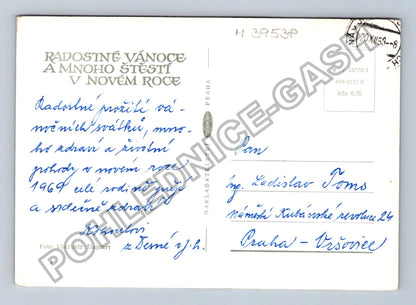 H 3953P
RADOSTNÉ VÁNOCE
A MNOHO ŠTĚSTÍ
V NOVÉM ROCE
Radostné prožití vá-
nočních svátků, mno-
ho zdraví a životní
pohody v novém roce
1969 celé rodině přeje
a srdečně zdraví
z Desné v J. h.
Foto Vladimír
NAKLADATELSTVÍ
PRAHA
Kčs 0,70
Pan
ing. Ladislav Toms
náměstí Kubánské revoluce 24
Praha - Vršovice
POHLEDNICE-GASH